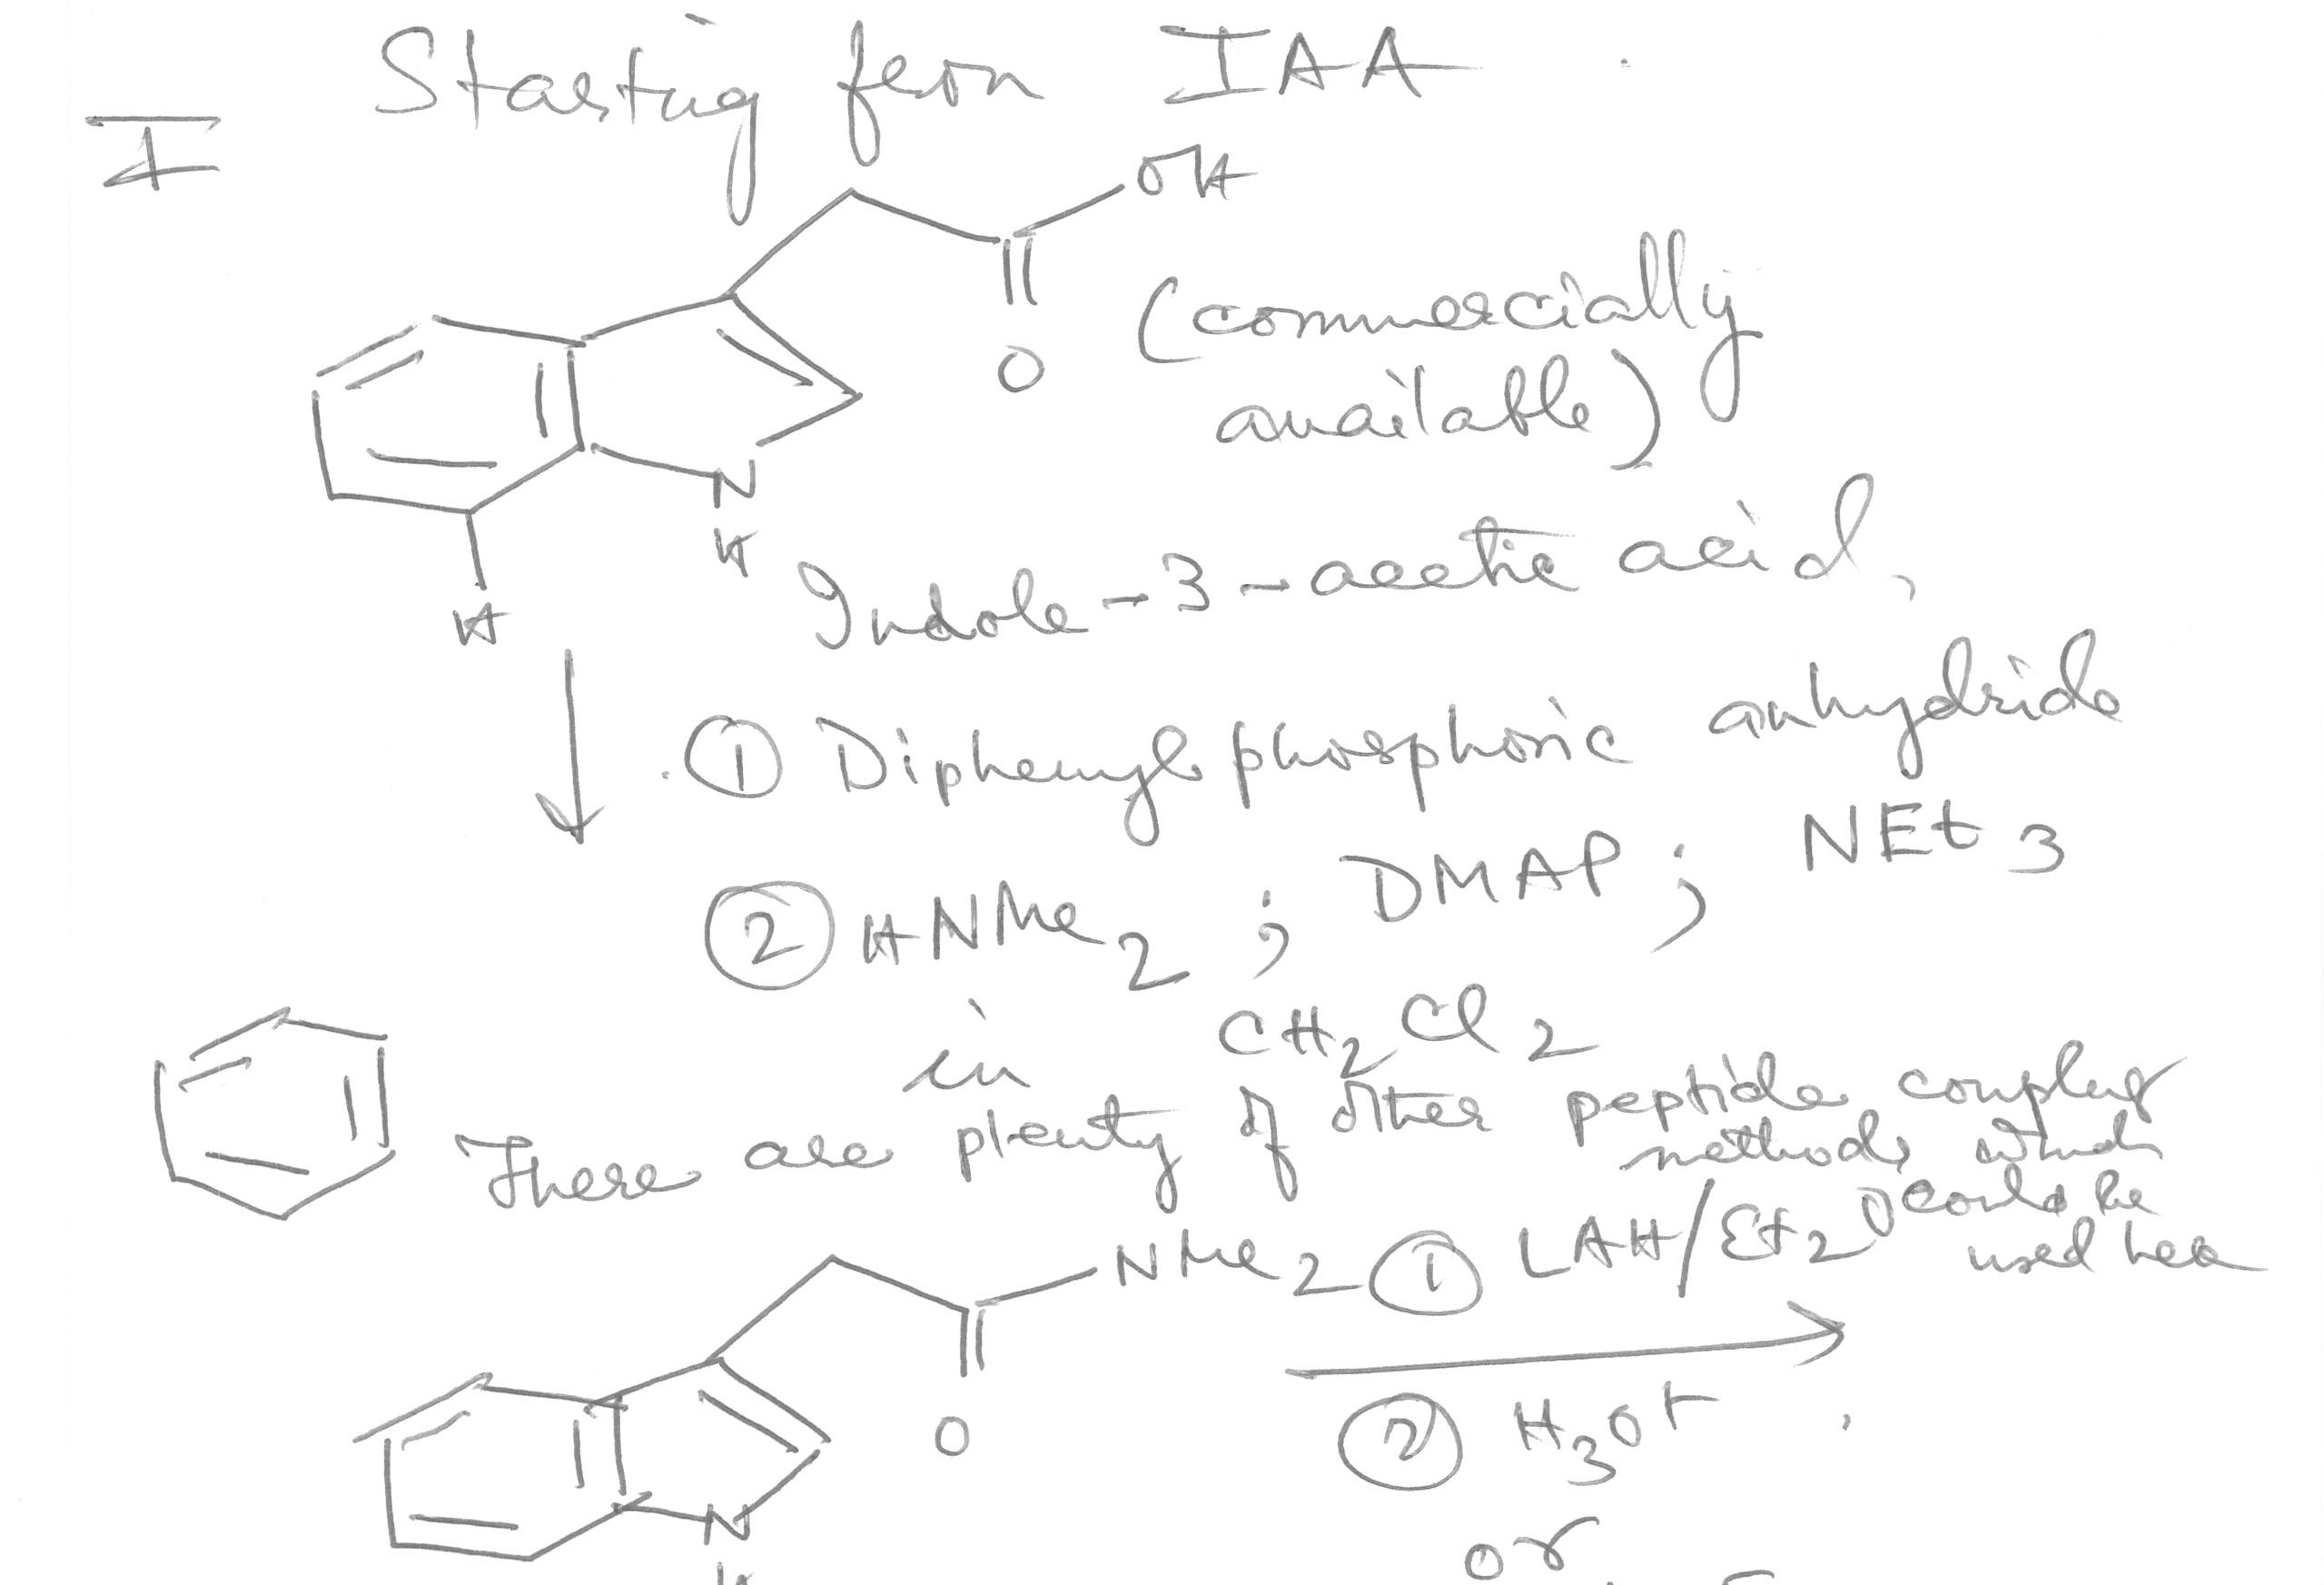 Starting from IAA
I
OH
O
(commercially
available)
N
H
H
Indole-3-acetic acid,
① Diphenyl phosphoric anhydride
② HNMe2 ; DMAP ; NEt3
in CH2Cl2
There are plenty of other peptide coupling
methods which
could be
used here
NMe2
① LAH/Et2O
O
② H3O+
N
H
or